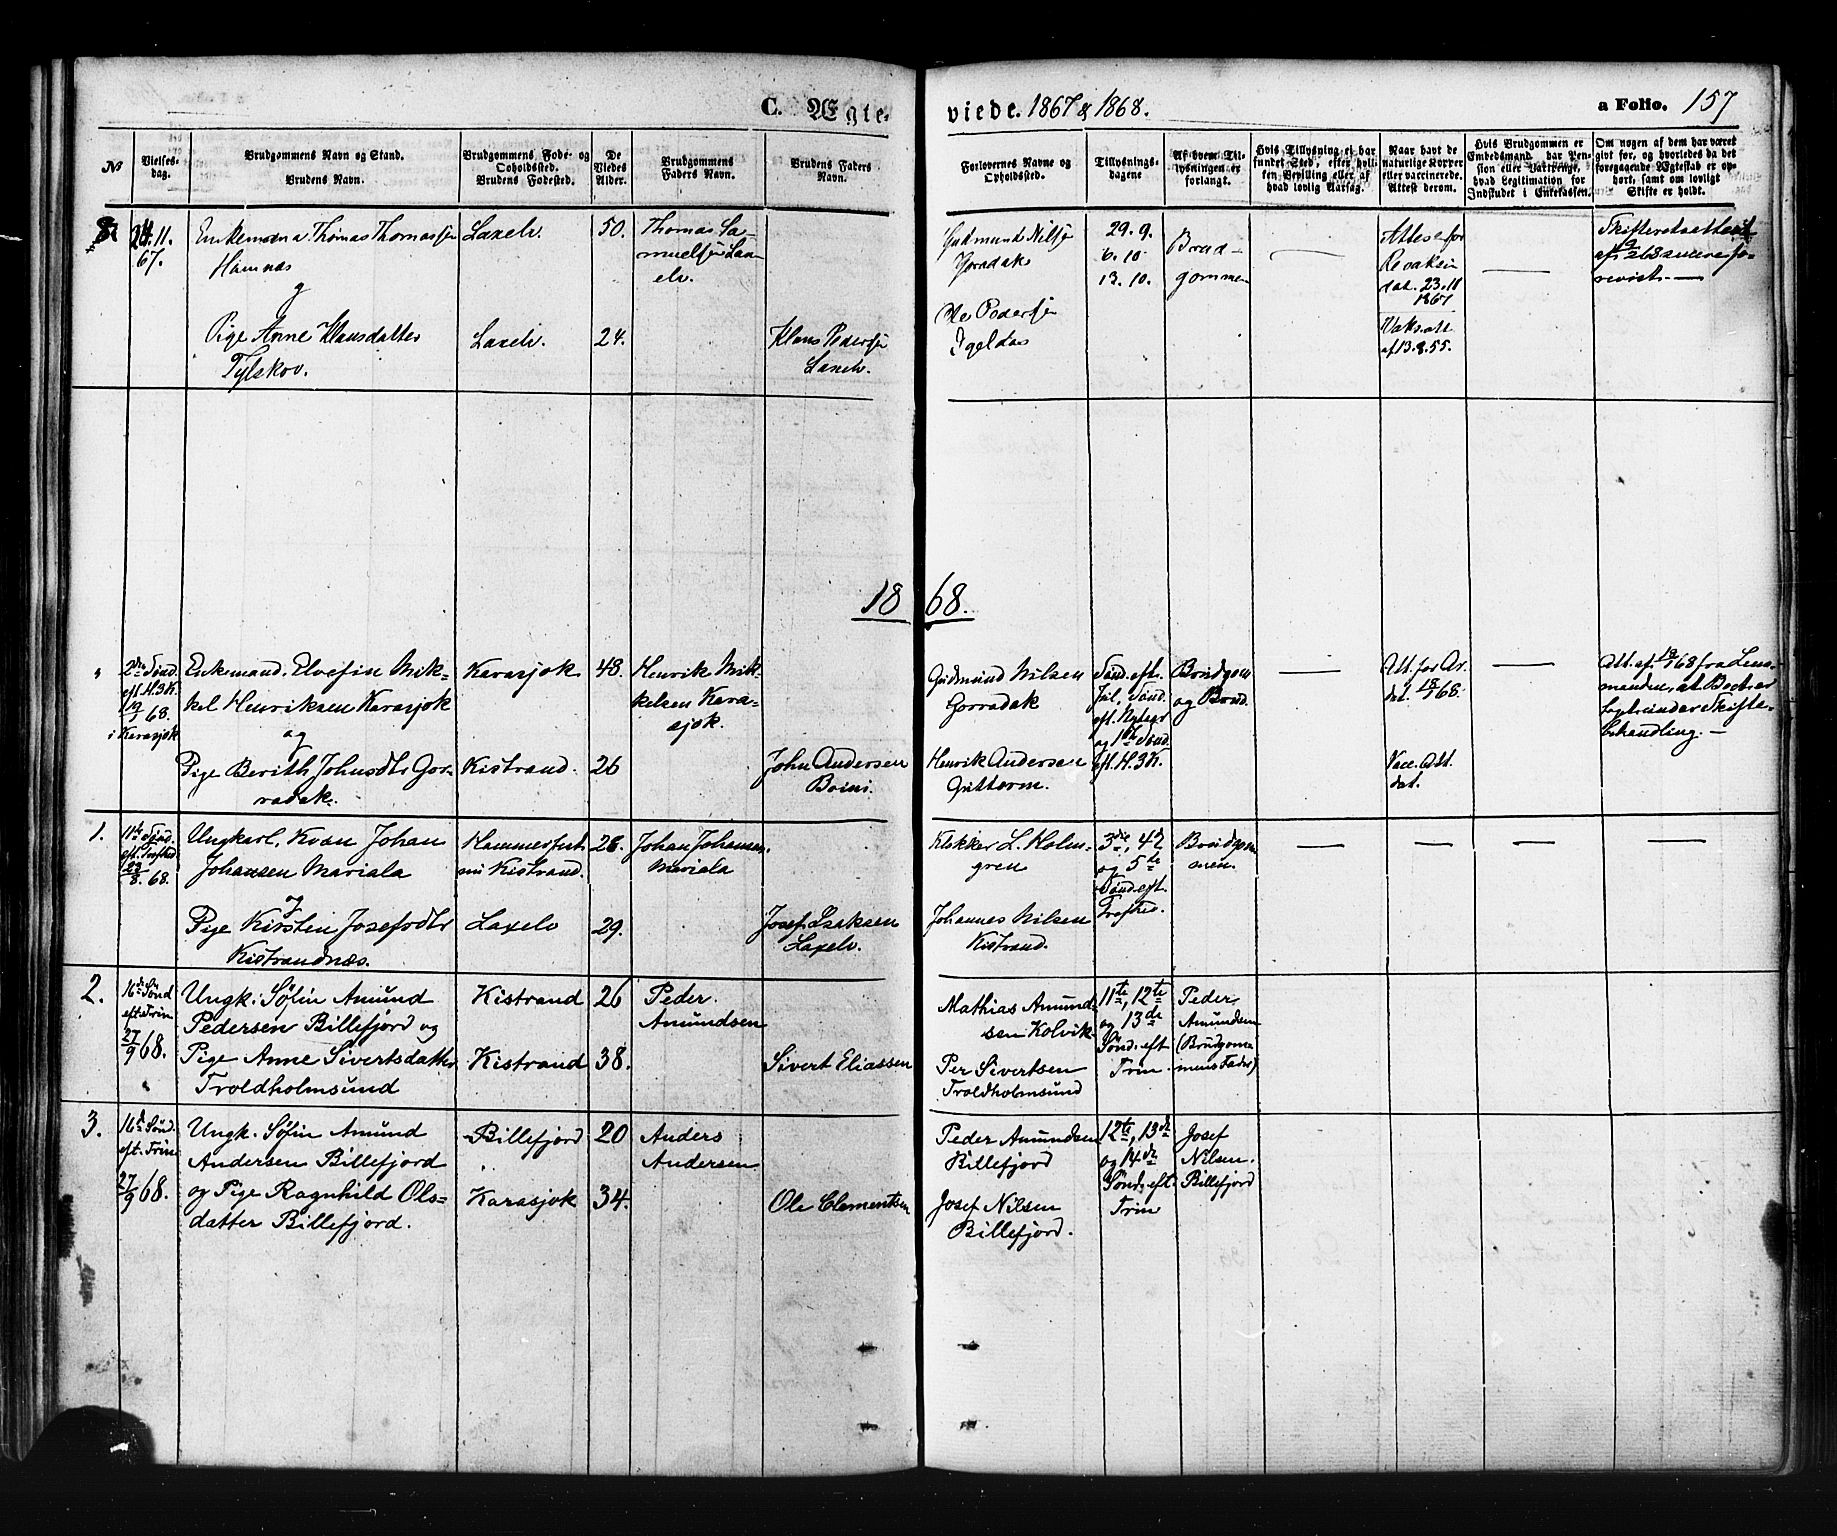 C. Ægte-
viede. 1867 & 1868.
a Folio. 157
No
Vielses-
dag.
Brudgommens Navn og Stand.
Brudens Navn.
Brudgommens Føde- og
Opholdssted.
Brudens Fødested.
De
Viedes
Alder.
Brudgommens
Faders Navn.
Brudens Faders
Navn.
Forlovernes Navne og
Opholdssted.
Tillysnings-
dagene
Af hvem Til-
lysningen er
forlangt.
Hvis Tillysning ei har
fundet Sted, efter hvil-
ken Bevilling eller af
hvad lovlig Aarsag.
Naar havt de
naturlige Kopper
eller vaccinerede.
Attest derom.
Hvis Brudgommen er
Embedsmand, har Pen-
sion eller Vartpenge,
hvad Legitimation for
Indskudet i Enkekassen.
Om nogen af dem har været
gift før, og hvorledes da det
foregaaende Ægteskab er op-
hørt, samt om lovligt
Skifte er holdt.
24.11.
67.
Enkemand Thomas Thomassen
Hamnæs
g
Pige Anne Klausdatter
Tylskov.
Laxelv.
Laxelv.
50.
24.
Thomas Sa-
muelsen Lax-
elv.
Klaus Pedersen
Laxelv.
Gudmund Nilsen
Gorradak
Ole Pedersen
Igeldas
29. 9.
6. 10.
13. 10.
Brud-
gommen
Attest for
Revaksin
dat. 23.11
1867
Vaks. att
af 13.8.55.
Skifteretsattest
af
revist.
18 68.
"
2den Sönd.
eft. H.3K.
19/1 68.
i Karasjok
Enkemand. Elvefin Mik-
kel Henriksen Karasjok
og
Pige Berith Johnsdtr Gor-
radak.
Karasjok
Kistrand.
48.
26
Henrik Mik-
kelsen Kara-
sjok.
John Andersen
Boini.
Gudmund Nilsen
Gorradak
Henrik Andersen
Guttorm.
Sönd. eft.
Jul, Sönd.
eft. Nytaar
og 1ste Sönd.
eft. H.3K.
Brudgom
og Brud.
Att. for Ar.
dat. 18/1 68.
Vacc. Att.
dat.
Att. af 18/1 68 fra Lens-
manden, at Boet er
taget under Skifte-
behandling. —
1.
11te Sönd.
eft. Trefted
23/8 68.
Ungkarl, Kvæn Johan
Johansen Mariala
og
Pige Kirsten Josefsdtr
Kistrandnæs.
Hammerfest
nu Kistrand.
Laxelv
28.
29.
Johan Johansen
Mariala
Josef Isaksen
Laxelv.
Klokker L. Holm-
gren
Johannes Nilsen
Kistrand.
3die, 4de
og 5te
Sönd. eft.
Trefted.
Brudgom-
men.
2.
16de Sönd
eft. Trin
27/9 68.
Ungk. Søfin Amund
Pedersen Billefjord og
Pige Anne Sivertsdatter
Troldholmsund
Kistrand
Kistrand
26
38.
Peder
Amundsen
Sivert Eliassen
Mathias Amund-
sen Kolvik
Per Sivertsen
Troldholmsund
11te, 12te
og 13de
Sönd. eft
Trin.
Peder
Amundsen
(Brudgom-
mens Fader)
3.
16de Sönd.
eft. Trin
27/9 68.
Ungk. Søfin Amund
Andersen Billefjord
og Pige Ragnhild Ols-
datter Billefjord.
Billefjord
Karasjok
20
34.
Anders
Andersen
Ole Clementsen
Peder Amundsen
Billefjord
Josef Nilsen
Billefjord.
12te, 13de
og 14de
Sönd. eft.
Trin
Josef
Nilsen.
Billefjord